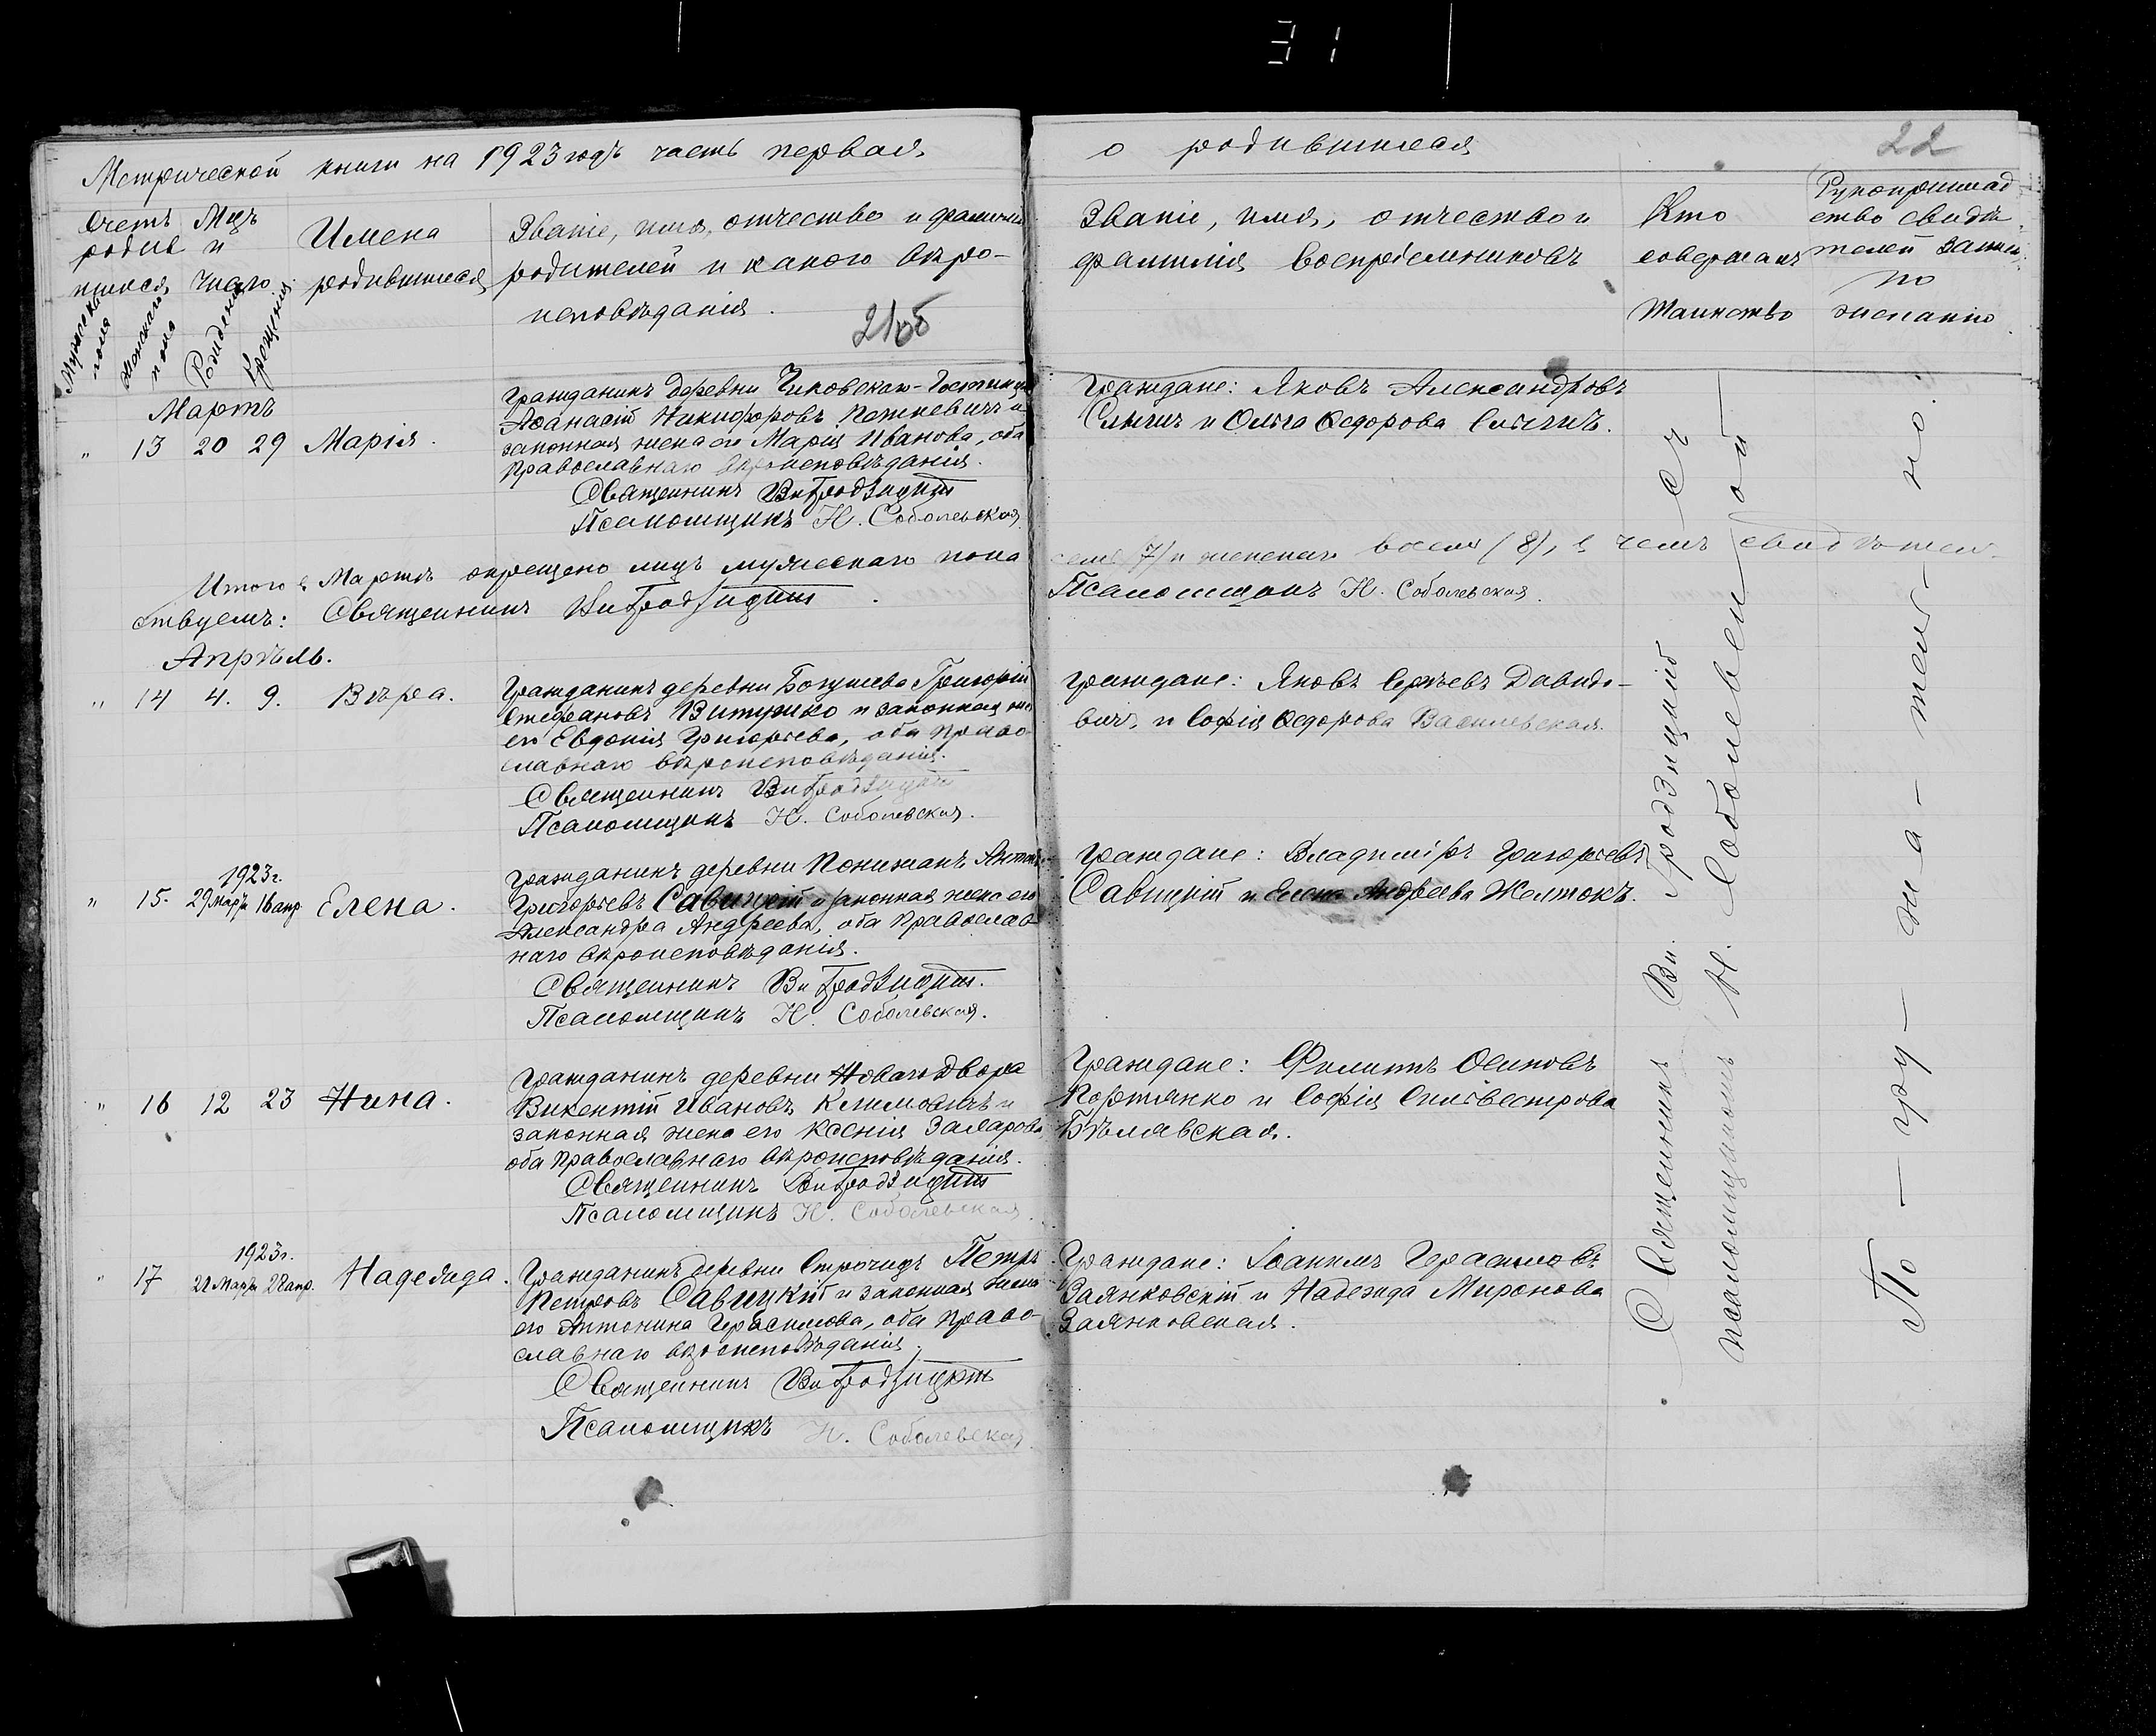 31
Метрической книги на 1923 годъ часть первая
о родившихся
22
Счетъ родив шихся
Мужскаго пола
Женскаго пола
Мцъ и число
Рожденія
Крещенія
Имена
родившихся
Званіе, имя, отчество и фамилія
родителей и какого вѣро-
исповѣданія.
21об
Званіе, имя, отчество и
фамилія воспріемниковъ
Кто
совершалъ
таинство
Рукоприклад
ство свидѣ
телей записи
по
желанію
Мартъ
" 13 20 29 Марія.
Гражданинъ деревни
Аѳанасій Никифоровъ Петкевичъ и
законная жена его Марія Иванова, оба
православнаго вѣроисповѣданія.
Священникъ Ви Гродзицкій
Псаломщикъ Н. Соболевская
Граждане: Яковъ Александровъ
и Ольга Ѳедорова
Итого въ Мартѣ окрещено лицъ мужескаго пола
семь /7/ и женскаго восемь (8), въ чемъ свидѣтель-
ствуемъ: Священникъ Ви Гродзицкій
Псаломщикъ Н. Соболевская.
Апрѣль.
" 14 4. 9. Вѣра.
Гражданинъ деревни Григорій
Стефановъ Витушко и законная жена
его Евдокія Григорьева, оба право-
славнаго вѣроисповѣданія.
Священникъ Ви Гродзицкій
Псаломщикъ Н. Соболевская.
Граждане: Яковъ Сергѣевъ Давидо-
вичъ и Софія Ѳедорова Василевская.
1923г.
" 15. 29 Мартъ 16 апр. Елена.
Гражданинъ деревни Понижанъ Антонъ
Григорьевъ Савицкій и законная жена его
Александра Андреева, оба православ
наго вѣроисповѣданія.
Священникъ Ви Гродзицкій.
Псаломщикъ Н. Соболевская.
Граждане: Владиміръ Григорьевъ
Савицкій и Елена Андреева Желтокъ.
" 16 12 23 Нина.
Гражданинъ деревни Новаго Двора
Викентій Ивановъ Климовичъ и
законная жена его Ксенія
оба православнаго вѣроисповѣданія.
Священникъ Ви Гродзицкій
Псаломщикъ Н. Соболевская.
Граждане: Филиппъ Осиповъ
Портянко и Софія Сильвестрова
Бѣлявская.
1923г.
" 17 22 Мартъ 22 апр. Надежда.
Гражданинъ деревни Строчицъ Петръ
Петровъ Савицкій и законная жена
его Антонина Герасимова, оба право-
славнаго вѣроисповѣданія.
Священникъ Ви Гродзицкій
Псаломщикъ Н. Соболевская.
Граждане: Іоакимъ Герасимовъ
Заянковскій и Надежда Миронова
Заянковская.
Священникъ Ви. Гродзицкій съ
псаломщикомъ Н. Соболевской
По — гру — жа — тель — но.